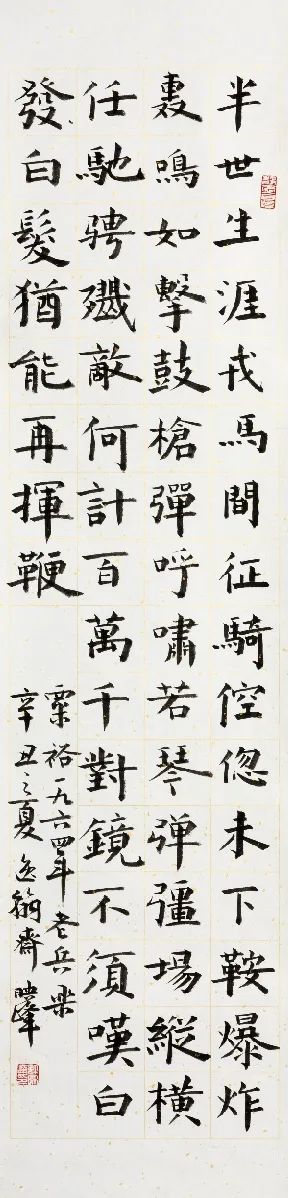 半世生涯戎馬間征騎倥偬未下鞍爆炸
轰鳴如擊鼓槍彈呼嘯若琴弹疆場縱橫
任馳骋殲敵何計百萬千對鏡不須嘆白
發白髮猶能再揮鞭
粟裕一九六四年老兵楽
辛丑之夏逸翰齋